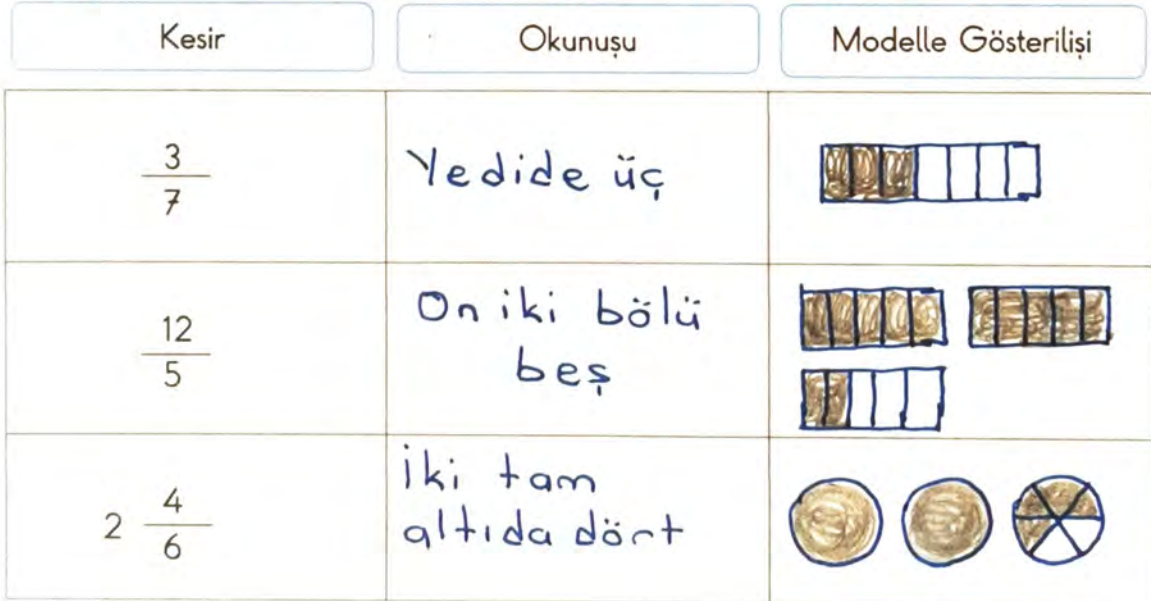 Kesir Okunuşu Modelle Gösterilişi
3
7
Yedide üç
12
5
On iki bölü
beş
2 4
6
İki tam
altıda dört